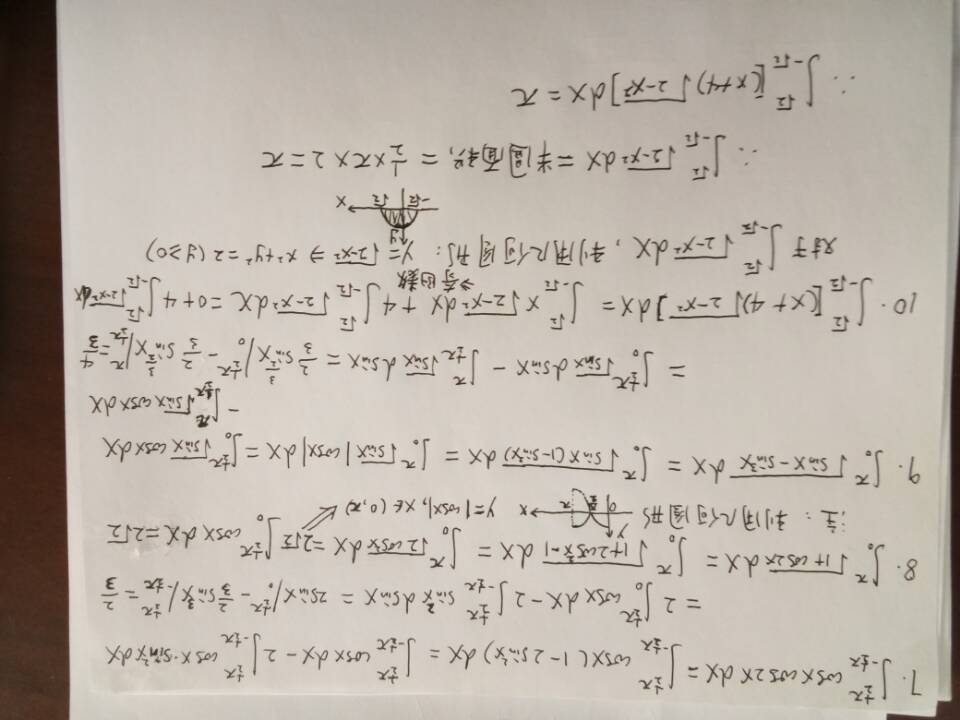 7. ∫_{-½π}^{½π} cosx cos2x dx = ∫_{-½π}^{½π} cosx(1-2sin²x) dx = ∫_{-½π}^{½π} cosx dx - 2∫_{-½π}^{½π} cosx·sin²x dx
= 2∫_0^{½π} cosx dx - 2∫_{-½π}^{½π} sin²x dsinx = 2sinx|_0^{½π} - ⅔ sin³x|_{-½π}^{½π} = ⅔
8. ∫_0^π √(1+cos2x) dx = ∫_0^π √(1+2cos²x-1) dx = ∫_0^π √(2cos²x) dx = 2√2 ∫_0^{½π} cosx dx = 2√2
注: 利用几何图形 y x 0 π/2 π y=|cosx|, x∈(0,π)
9. ∫_0^π √(sinx-sin³x) dx = ∫_0^π √(sinx(1-sin²x)) dx = ∫_0^π √sinx |cosx| dx = ∫_0^{½π} √sinx cosx dx
- ∫_{½π}^π √sinx cosx dx
= ∫_0^{½π} √sinx dsinx - ∫_{½π}^π √sinx dsinx = ⅔ sin^{3/2}x|_0^{½π} - ⅔ sin^{3/2}x|_{½π}^π = 4/3
10. ∫_{-√2}^{√2} [(x+4)√(2-x²)] dx = ∫_{-√2}^{√2} x√(2-x²) dx + 4∫_{-√2}^{√2} √(2-x²) dx = 0+4∫_{-√2}^{√2} √(2-x²) dx
→奇函数
对于 ∫_{-√2}^{√2} √(2-x²) dx, 利用几何图形: y=√(2-x²) ⇒ x²+y²=2 (y≥0)
y x -√2 √2
∴ ∫_{-√2}^{√2} √(2-x²) dx = 半圆面积, = ½×π×2 = π
∴ ∫_{-√2}^{√2} [(x+4)√(2-x²)] dx = π